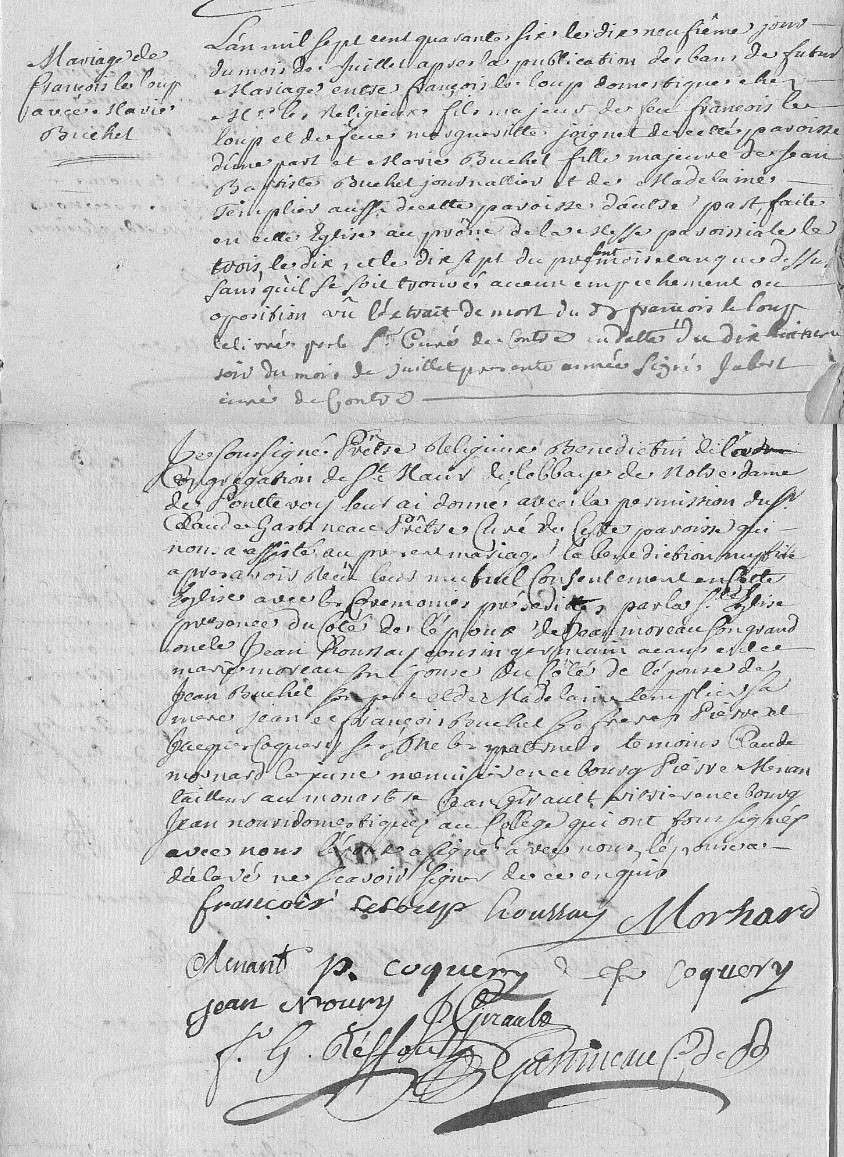 Mariage de
françois le loup
avec Marie
Buchet
L'an mil sept cent quarante six le dix neufième jour
du mois de Juillet apres la publication des bans de futur
Mariage entre françois le loup domestique chez
Mrs les Religieux fils majeur de feu françois le
loup et de feue joignet de cette paroisse
d'une part et Marie Buchet fille majeure de Jean
Baptiste Buchet journallier et de Madelaine
Templier aussi de cette paroisse d'autre part faite
en cette Eglise au prône de la Messe paroissiale le
trois, le dix, et le dix sept du present mois et an que dessus
sans qu'il se soit trouvés aucun empechement ou
oposition vû l'extrait de mort du françois le loup
delivrés par le Sr Curé de Contre en datte du dix
du mois de juillet presente année signés Jabert
curé de Contre
Je soussigné Prêtre Religieux Benedictin de la
Congregation de St Maur de l'abbaye de Notre dame
de Pontlevoy leur ai donné avec la permission du Sr
Claude Gastineau Prêtre Curé de Cette paroisse qui
nous a assisté au present mariage la benediction nuptiale
apres avoir Reçu leurs mutuel Consentement en Cette
Eglise avec les Ceremonies prescrittes par la Ste Eglise
presence du Côté de l'époux de Jean moreau son grand
oncle Jean houssay cousin germain a cause de
marie moreau son épouse du Côté de l'épouse de
Jean Buchet son pere et de Madelaine templier sa
mere jean et françois Buchet ses freres Pierre et
Jacques Coquery ses oncles paternels temoins Claude
mornard le jeune menuisier en ce bourg Pierre Menan
tailleur au monastere Jean Girault en ce bourg
Jean nouri domestique au College qui ont sous signés
avec nous l'époux a signé avec nous l'épouse a
déclaré ne sçavoir signer de ce enquis
françois le Loup houssay Mornard
Menant p. coquery coquery
jean Noury J Girault
f. G. Gastineau C. de P